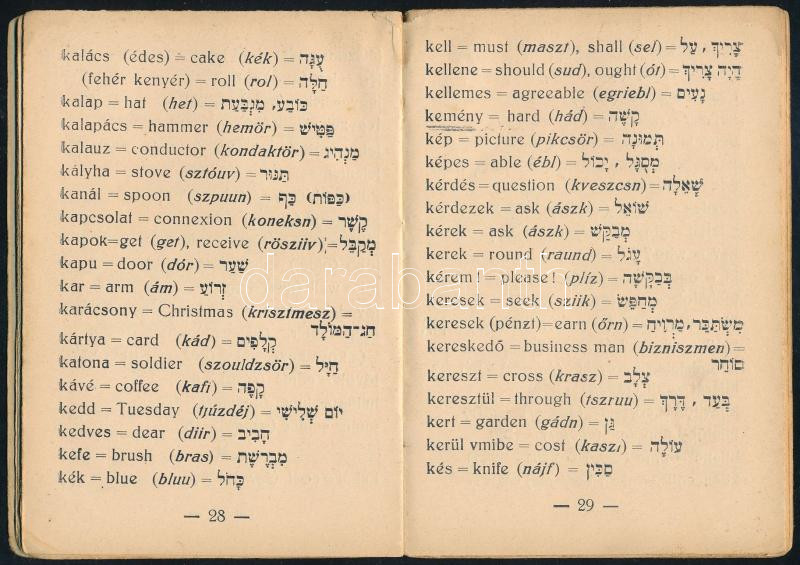 kalács (édes) = cake (kék) = עֻגָּה
(fehér kenyér) = roll (rol) = חַלָּה
kalap = hat (het) = כּוֹבַע, מִגְבַּעַת
kalapács = hammer (hemör) = פַּטִּישׁ
kalauz = conductor (kondaktör) = מַנְהִיג
kályha = stove (sztóuv) = תַּנּוּר
kanál = spoon (szpuun) = כַּף (כַּפּוֹת)
kapcsolat = connexion (koneksn) = קֶשֶׁר
kapok=get (get), receive (rösziiv) = מְקַבֵּל
kapu = door (dór) = שַׁעַר
kar = arm (ám) = זְרוֹעַ
karácsony = Christmas (krisztmesz) =
חַג־הַמּוֹלָד
kártya = card (kád) = קְלָפִים
katona = soldier (szouldzsör) = חַיָּל
kávé = coffee (kafi) = קָפֶה
kedd = Tuesday (tjúzdéj) = יוֹם שְׁלִישִׁי
kedves = dear (diir) = חָבִיב
kefe = brush (bras) = מִבְרֶשֶׁת
kék = blue (bluu) = כְּחֹל
— 28 —
kell = must (maszt), shall (sel) = צָרִיךְ, עַל
kellene = should (sud), ought (ót) = הָיָה צָרִיךְ
kellemes = agreeable (egriebl) = נָעִים
kemény = hard (hád) = קָשֶׁה
kép = picture (pikcsör) = תְּמוּנָה
képes = able (ébl) = מְסֻגָּל, יָכוֹל
kérdés = question (kveszcsn) = שְׁאֵלָה
kérdezek = ask (ászk) = שׁוֹאֵל
kérek = ask (ászk) = מְבַקֵּשׁ
kerek = round (raund) = עָגֹל
kérem! = please! (plíz) = בְּבַקָּשָׁה
keresek = seek (sziik) = מְחַפֵּשׂ
keresek (pénzt) = earn (őrn) = מִשְׂתַּכֵּר, מַרְוִיחַ
kereskedő = business man (bizniszmen) =
סוֹחֵר
kereszt = cross (krasz) = צְלָב
keresztül = through (tszruu) = בְּעַד, דֶּרֶךְ
kert = garden (gádn) = גַּן
kerül vmibe = cost (kaszt) = עוֹלֶה
kés = knife (nájf) = סַכִּין
— 29 —
darabanth.com